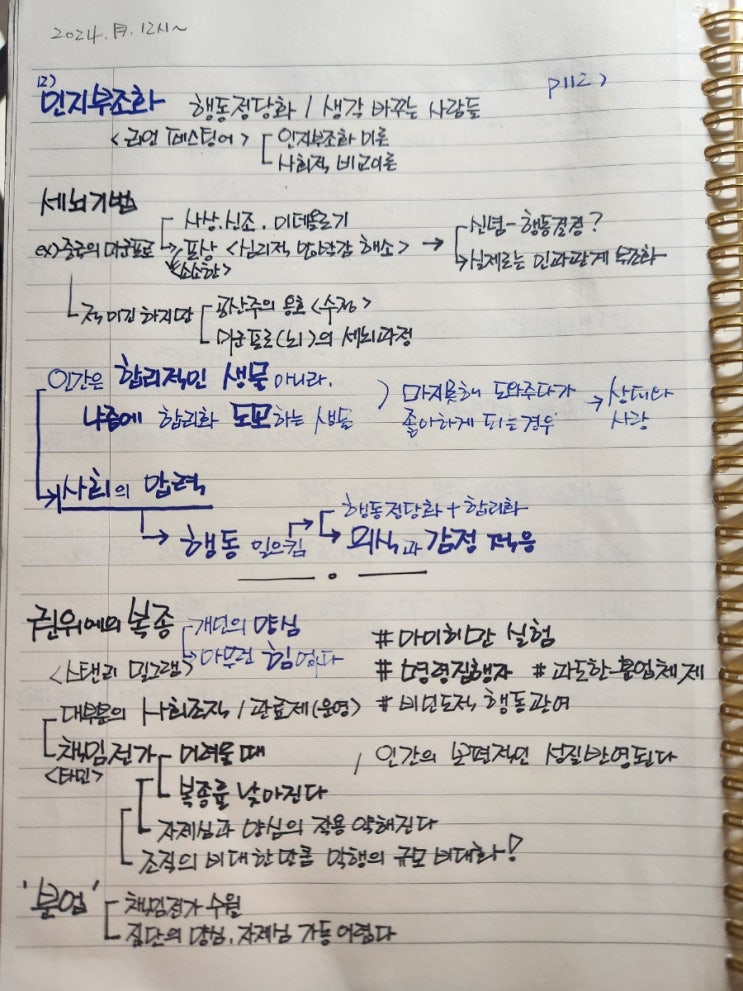 2024. 12시~
12)
인지부조화 행동정당화 / 생각 바꾸는 사람들 P112>
<리언 페스팅어> 인지부조화 이론
사회적 비교이론
세뇌기법
사상.신조.이데올로기
ex) 중국의 미군포로 포상 <심리적 압박감 해소> → 신념-행동결정?
<소소한> 실제로는 인과관계 부조화
적이긴 하지만 공산주의 옹호 <수정>
미군포로(뇌)의 세뇌과정
인간은 합리적인 생물 아니라. ) 마지못해 도와주다가 → 상대와
나중에 합리화 도모하는 생물 좋아하게 되는경우 사랑
사회의 압력
행동정당화 + 합리화
행동 일으킴 의식과 감정 적응
권위에의 복종 개인의 양심 # 아이히만 실험
<스탠리 밀그램> 아무런 힘 없다 # 명령집행자 # 과도한-분업체제
대부분의 사회조직 / 관료제(운영) # 비인도적 행동관여
책임전가 어려울 때 / 인간의 보편적인 성질반영된다
<타인> 복종률 낮아진다
자제심과 양심의 작용 약해진다
조직의 비대한만큼 악행의 규모 비대화!
'분업' 책임전가 수월
집단의 양심, 자제심 가동 어렵다